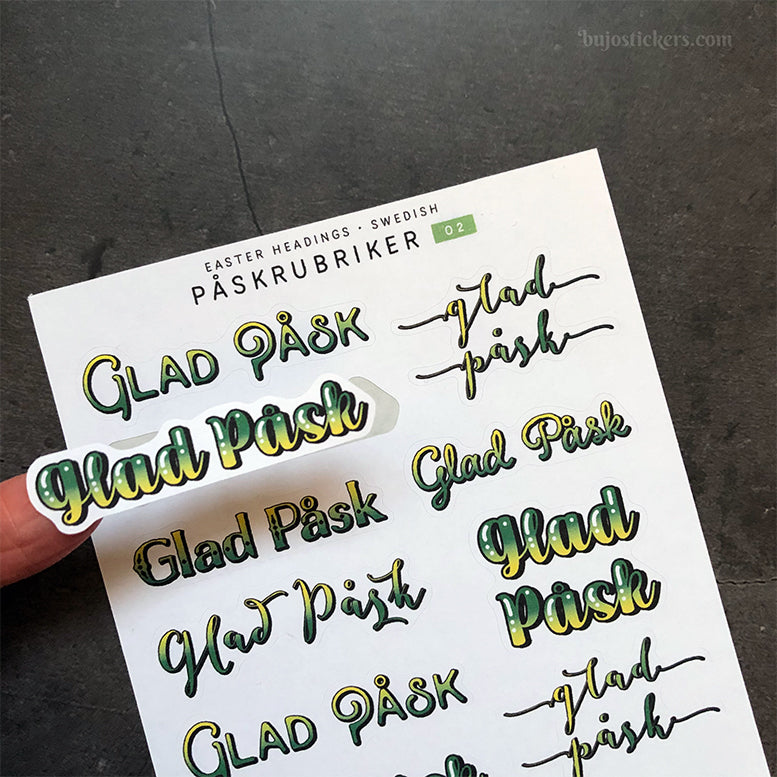 bujostickers.com
EASTER HEADINGS • SWEDISH
PÅSKRUBRIKER 02
GLAD PÅSK
glad
påsk
Glad Påsk
Glad Påsk
Glad Påsk
Glad
Påsk
Glad Påsk
GLAD PÅSK
glad
påsk